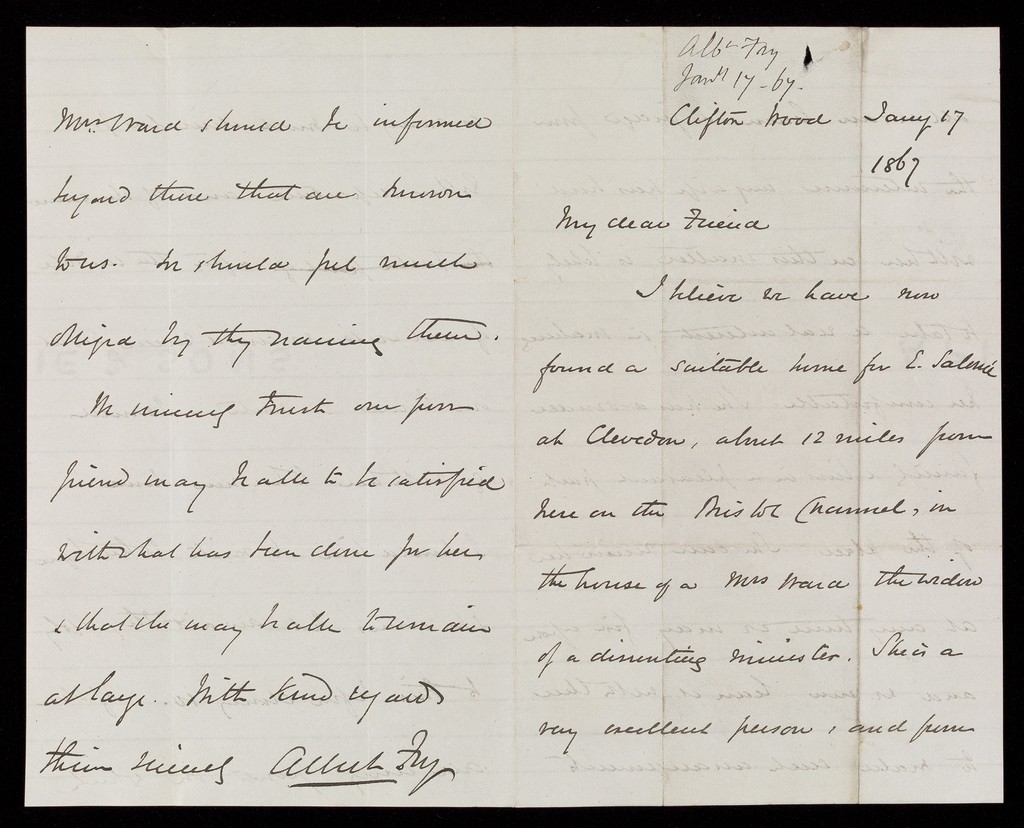 Albt Fry
Jany 17 - 67.
Clifton Wood Jany 17
1867
My dear Friend
I believe we have now
found a suitable home for E. Salmie
at Clevedon, about 12 miles from
here on the Bristol Channel, in
the house of a Mrs Ward the widow
of a dissenting minister. She is a
very excellent person, and from
Mrs. Ward should be informed
beyond those that are known
to us. We should feel much
obliged by thy naming them.
We sincerely trust our poor
friend may be able to be satisfied
with what has been done for her,
& that she may be able to remain
at large. With kind regards
thine sincerely Albert Fry